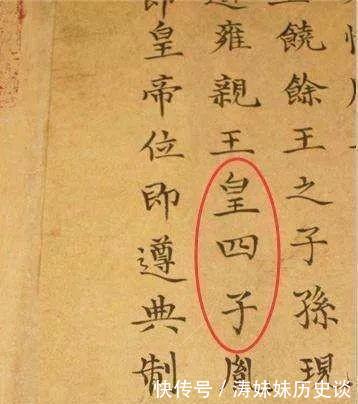 饒餘王之子孫現
雍親王皇四子胤
即皇帝位即遵典制
快传号 / 涛妹妹历史谈